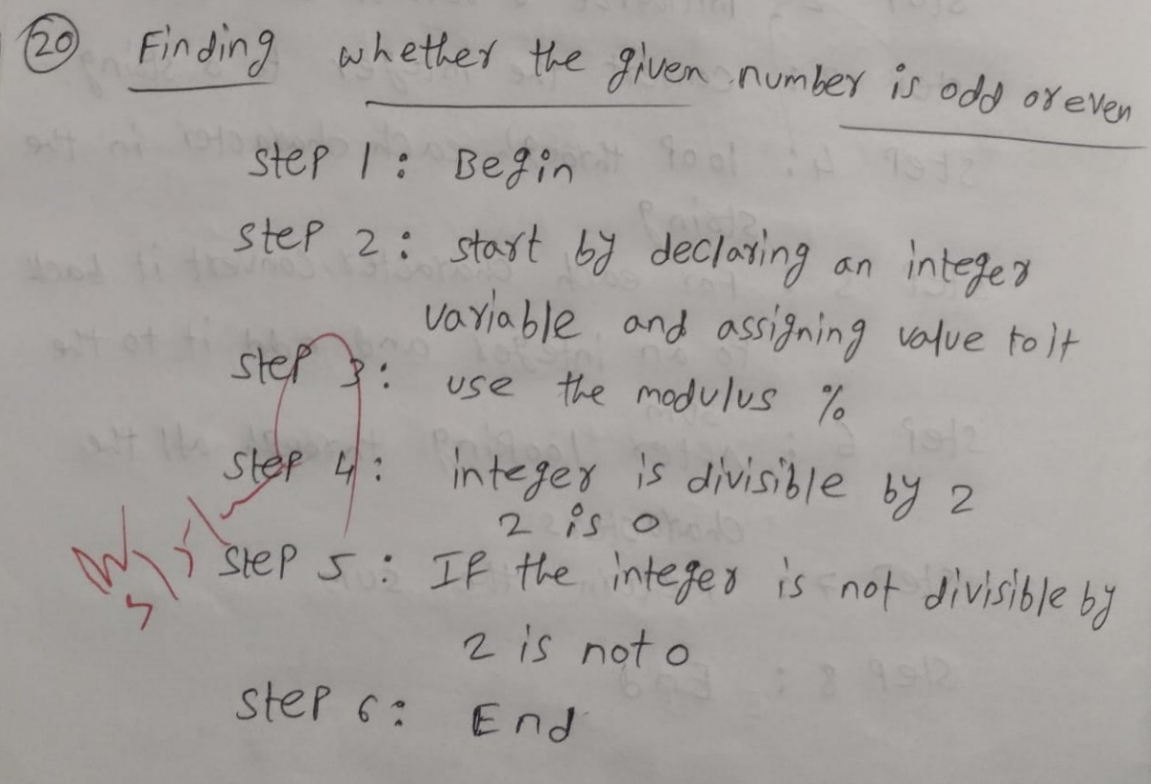 20 Finding whether the given number is odd or even
Step 1: Begin
Step 2: start by declaring an integer
variable and assigning value to it
Step 3: use the modulus %
Step 4: integer is divisible by 2
2 is 0
Step 5: If the integer is not divisible by
2 is not 0
Step 6: End